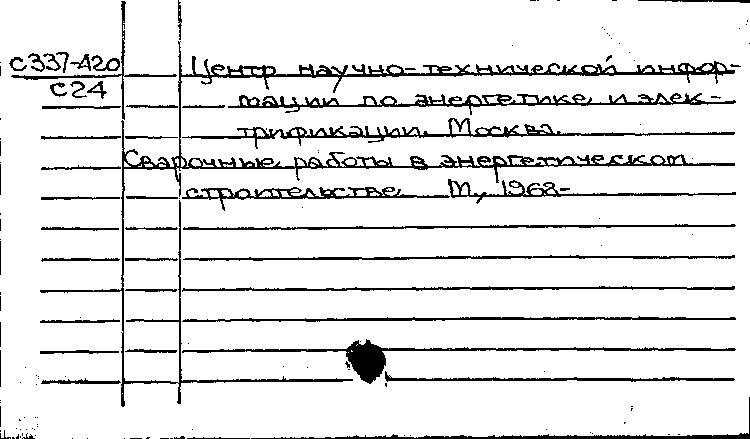 С337-420
С24
Центр научно-технической инфор-
мации по энергетике и элек-
трификации. Москва.
Сварочные работы в энергетическом
строительстве. М., 1968-